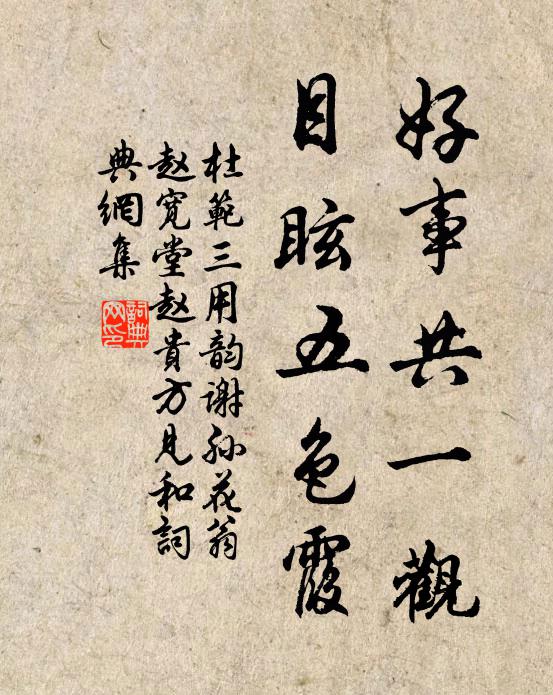 好事共一觀
目眩五色霞
杜範三用韵谢孙花翁
赵寬堂赵貴方見和詞
典網集
詞典
网印